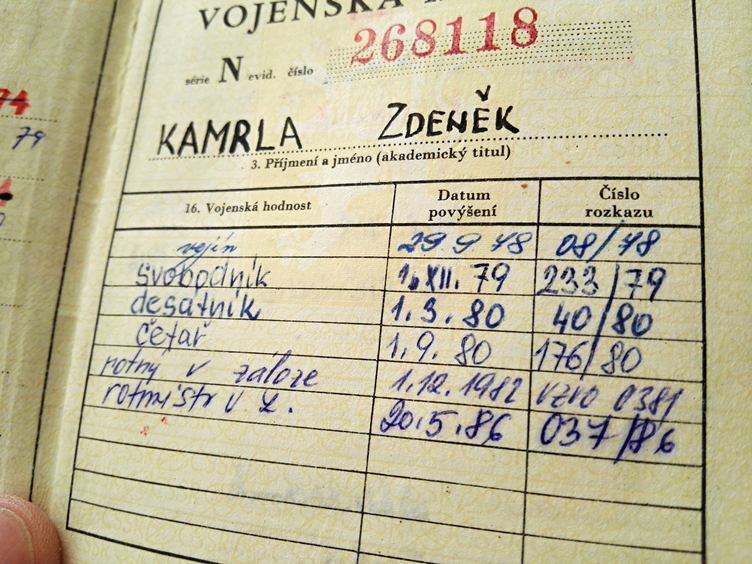 VOJENSKÁ
série N evid. číslo 268118
KAMRLA ZDENĚK
3. Příjmení a jméno (akademický titul)
16. Vojenská hodnost Datum povýšení Číslo rozkazu
vojín 29 9 78 08/78
svobodník 1. XII. 79 233/79
desátník 1. 3. 80 40/80
četař 1. 9. 80 176/80
rotný v záloze 1.12.1982 0381
rotmistr v z. 20.5.86 037/86
79